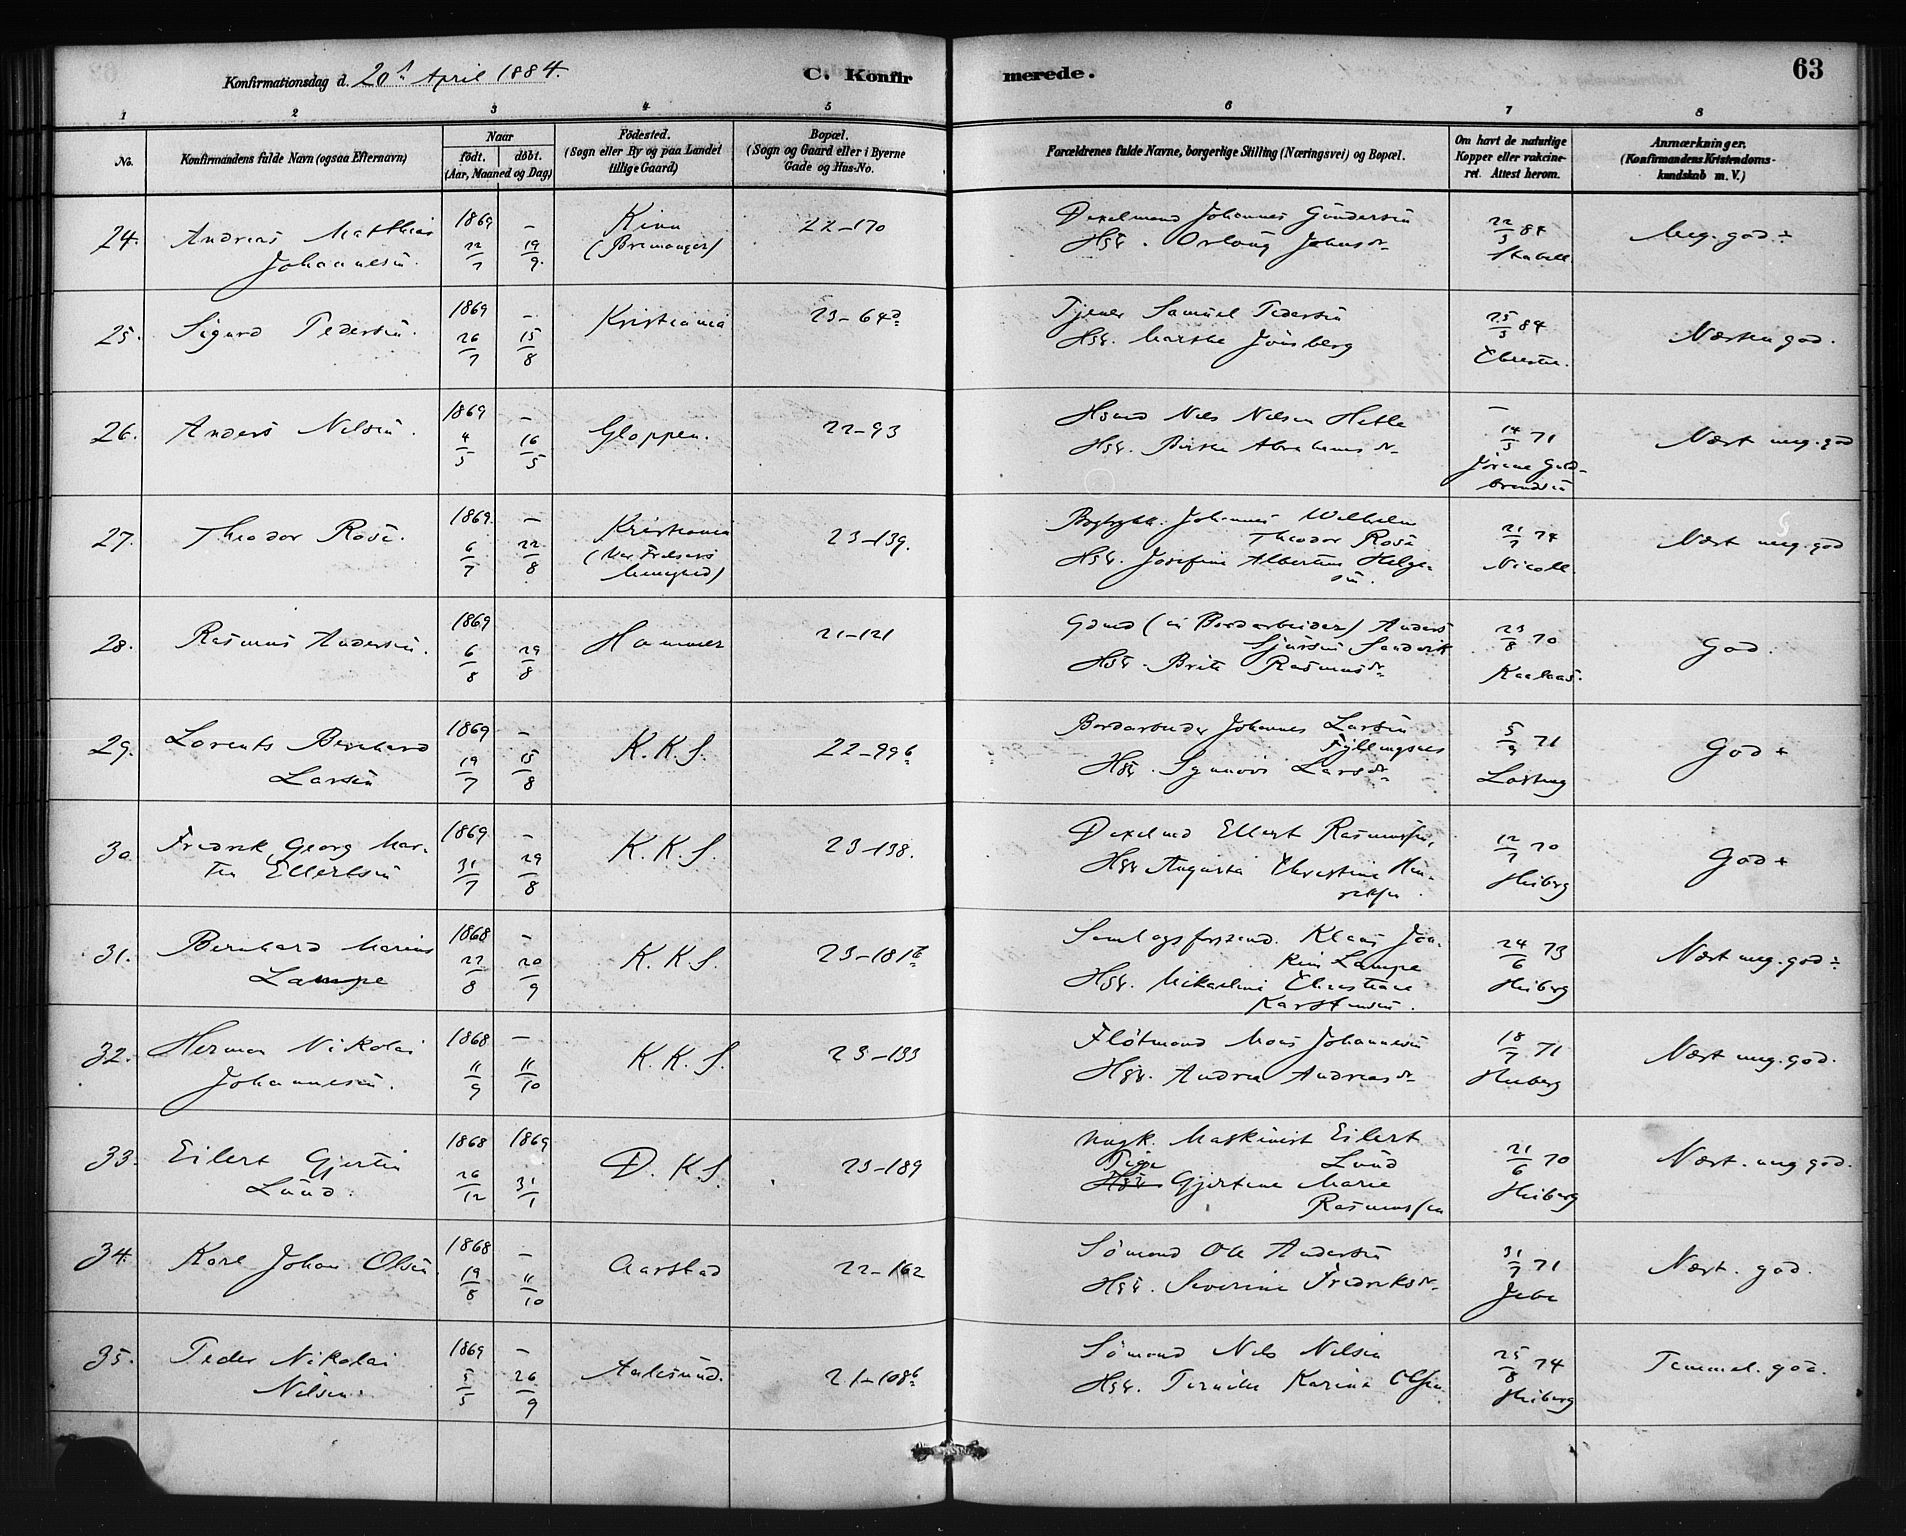 Konfirmationsdag d. 20de April 1884.
C. Konfirmerede.
63
1 2 3 4 5 6 7 8
No.
Konfirmandens fulde Navn (ogsaa Efternavn)
Naar
født. døbt.
(Aar, Maaned og Dag)
Födested.
(Sogn eller By og paa Landet
tillige Gaard)
Bopæl.
(Sogn og Gaard eller i Byerne
Gade og Hus-No.
Forældrenes fulde Navne, borgerlige Stilling (Næringsvei) og Bopæl.
Om havt de naturlige
Kopper eller vakcine-
ret. Attest herom.
Anmærkninger.
(Konfirmandens Kristendoms-
kundskab m. V.)
24. Andreas Matthias
Johannesen.
1869 22/7 – 19/9
Kinn
(Bremanger)
22–170
Dexelmand Johannes Gundersen
Hstr. Johnsdr
22/3 84
Stabell.
Meg. god ÷
25. Sigurd Pedersen.
1869 26/7 – 15/8
Kristiania
23–64d
Tjener Samuel Pedersen
Hstr. Marthe
25/3 84
Næsten god.
26. Anders Nilsen.
1869 4/5 – 16/5
Gloppen.
22–93
Hsmd Nils Nilsen Hetle
Hstr. Abrahamsdr
– 14/5 71
Guld-
brandsen
Næst meg. god
27. Theodor Rose.
1869. 6/7 – 22/8
Kristiania
(Vor Frelsers
Menighed)
23–139.
Johannes Wilhelm
Theodor Rose
Hstr. Josefine Albertine Helge-
sen.
21/7 74
Nicoll.
Næst meg. god
28. Rasmus Andersen.
1869 6/8 29/8
Hammer
21–121
Gdmd (nu Bordarbeider) Anders
Sjursen Sandvik
Hstr. Brita Rasmusdr
23/8 70
God.
29. Lorents Bernhard
Larsen
1869 19/7 – 15/8
K. K. S.
22–99b
Bordarbeider Johannes Larsen
Fyllingsnes
Hstr. Synnove Larsdr
5/9 71
God +
30 Fredrik Georg Mar-
tin Ellertsen
1869 31/7 – 29/8
K. K. S.
23–138.
Dexelmd Ellert Rasmussen,
Hstr Augusta Christine Hen-
riksen.
12/7 70
Heiberg
God +
31. Bernhard Marius
Lampe
1868 22/8 – 20/9
K. K S.
23–181b
Samlagsforstand. Klaus Joa-
kim Lampe
Hstr. Mikaeline Christiane
Karstensen.
24/6 73
Heiberg
Næst meg. god ÷
32. Herman Nikolai
Johannesen.
1868 11/9 – 11/10
K. K. S.
23–133
Flötmand Mons Johannesen
Hstr. Andrea Andreasdr
18/7 71
Heiberg
Næst meg. god.
33. Eilert Gjertin
Lund.
1868 26/12 1869 31/1
D. K S.
23–189
Ungk. Maskinist Eilert
Lund
Pige
Hstr Gjertine Marie
Rasmussen
21/6 70
Heiberg
Næst. meg god.
34. Karl Johan Olsen.
1868 19/8 – 11/10
Aarstad
22–162
Sömand Ole Andersen
Hstr. Severine Fredriksdr
31/7 71
Jebe
Næst. god.
35. Peder Nikolai
Nilsen.
1869 5/5 – 26/9
Aalesund.
21–108b
Sömand Nils Nilsen
Hstr. Pernille Karina Olsen.
25/8 74
Heiberg
Temmel. god.